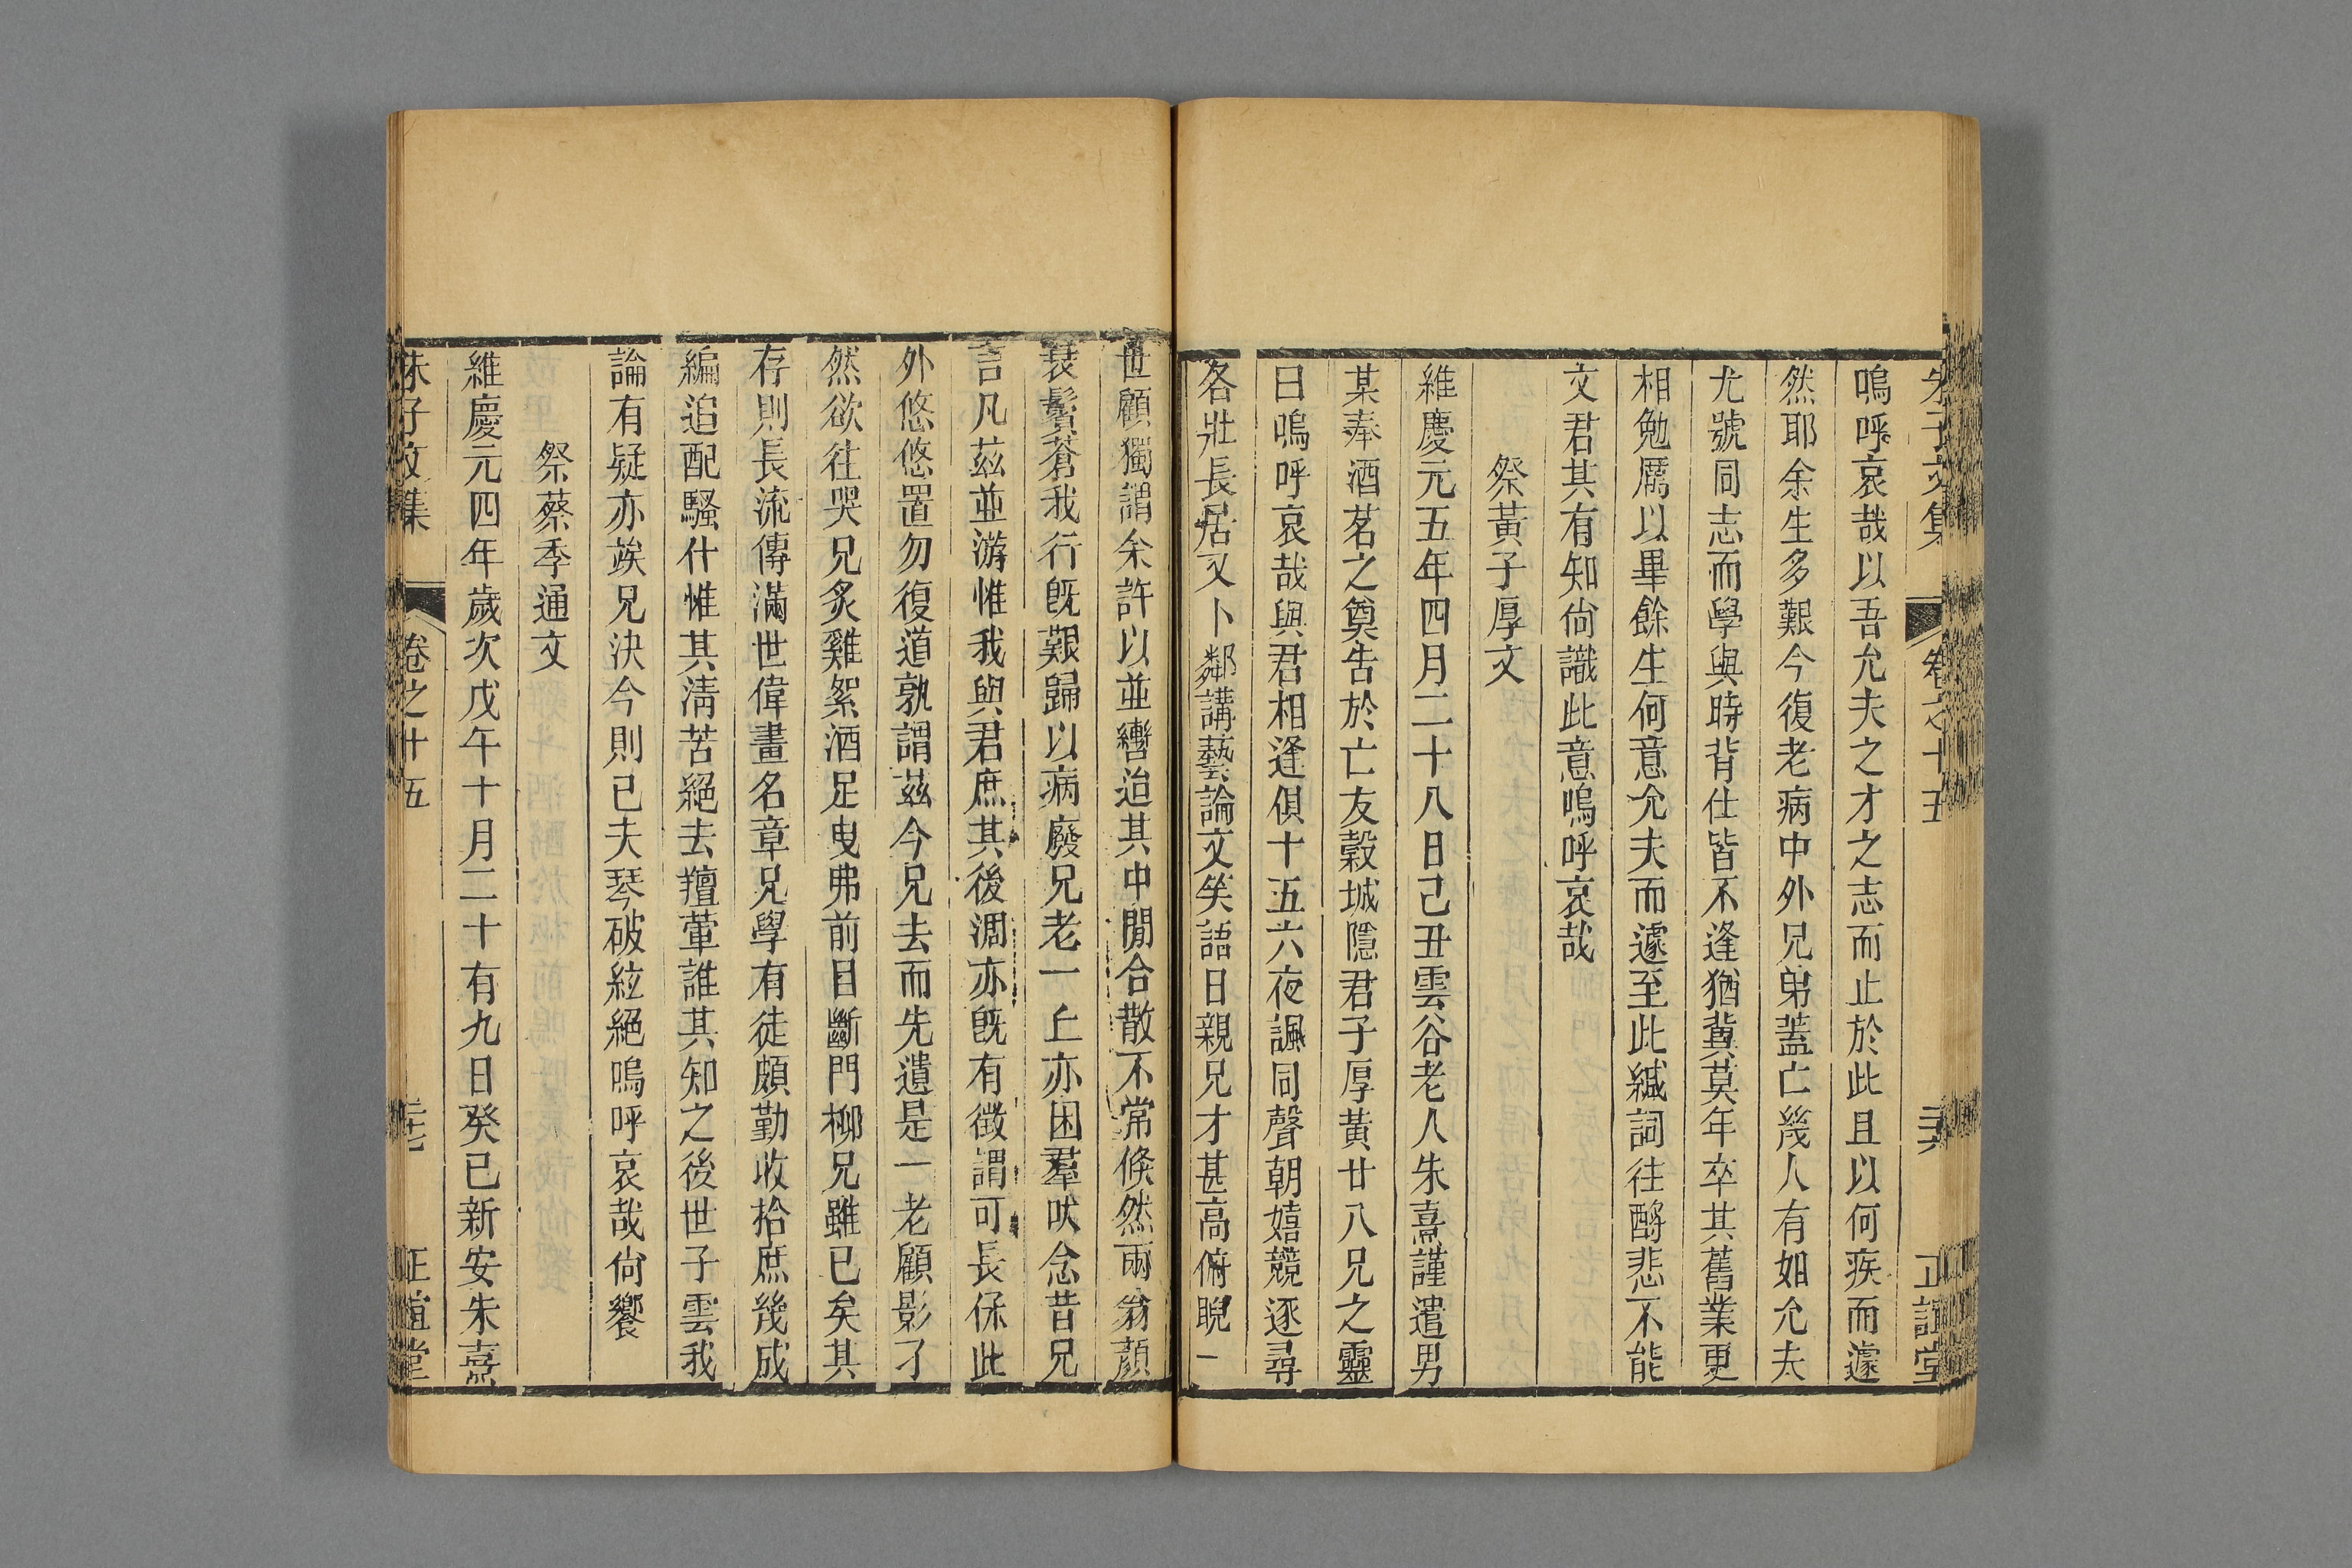 朱子文集 卷之十五 三六 正誼堂
嗚呼哀哉以吾允夫之才之志而止於此且以何疾而遽
然耶余生多艱今復老病中外兄弟蓋亡幾人有如允夫
尤號同志而學與時背仕皆不逢猶冀莫年卒其舊業更
相勉厲以畢餘生何意允夫而遽至此緘詞往酹悲不能
文君其有知尙識此意嗚呼哀哉
祭黃子厚文
維慶元五年四月二十八日己丑雲谷老人朱熹謹遣男
某奉酒茗之奠吿於亡友穀城隱君子厚黃廿八兄之靈
曰嗚呼哀哉與君相逢俱十五六夜諷同聲朝嬉競逐尋
各壯長居又卜鄰講藝論文笑語日親兄才甚高俯睨一
世顧獨謂余許以並轡迨其中閒合散不常倏然兩翁顏
衰鬢蒼我行旣艱歸以病廢兄老一丘亦困羣吠念昔兄
言凡茲並游惟我與君庶其後凋亦旣有徵謂可長保此
外悠悠置勿復道孰謂茲今兄去而先遺是一老顧影孑
然欲往哭兄炙雞絮酒足曳弗前目斷門柳兄雖已矣其
存則長流傳滿世偉畫名章兄學有徒頗勤收拾庶幾成
編追配騷什惟其淸苦絕去羶葷誰其知之後世子雲我
論有疑亦俟兄決今則已夫琴破絃絕嗚呼哀哉尙饗
祭蔡季通文
維慶元四年歲次戊午十月二十有九日癸巳新安朱熹
朱子文集 卷之十五 三七 正誼堂